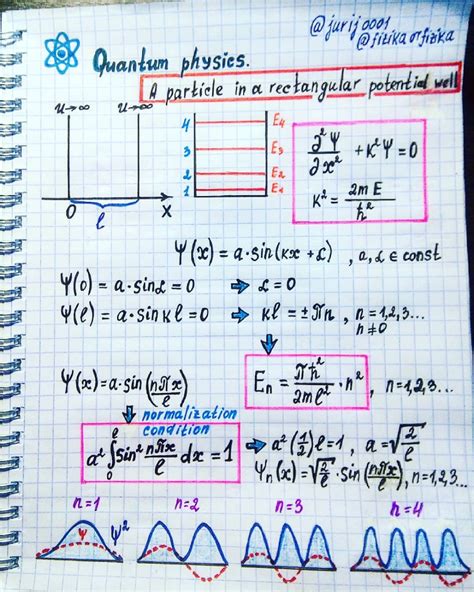 @jurij0001
@fizikaotfizika
Quantum physics.
A particle in a rectangular potential well
u→∞ u→∞
0 ℓ x
4 E₄
3 E₃
2 E₂
1 E₁
∂²Ψ/∂x² + k²Ψ = 0
k² = 2mE/ħ²
Ψ(x) = a·sin(kx + α) , a, α ∈ const
Ψ(0) = a·sinα = 0 ⇒ α = 0
Ψ(ℓ) = a·sin kℓ = 0 ⇒ kℓ = ±πn , n = 1,2,3... n≠0
Ψ(x) = a·sin(nπx/ℓ)
Eₙ = πħ²/2mℓ² · n² , n = 1,2,3...
normalization
condition
a² ∫₀^ℓ sin² nπx/ℓ dx = 1 ⇒ a²(1/2)ℓ = 1 , a = √(2/ℓ)
Ψₙ(x) = √(2/ℓ) · sin(nπx/ℓ), n = 1,2,3...
n=1 n=2 n=3 n=4
Ψ Ψ²